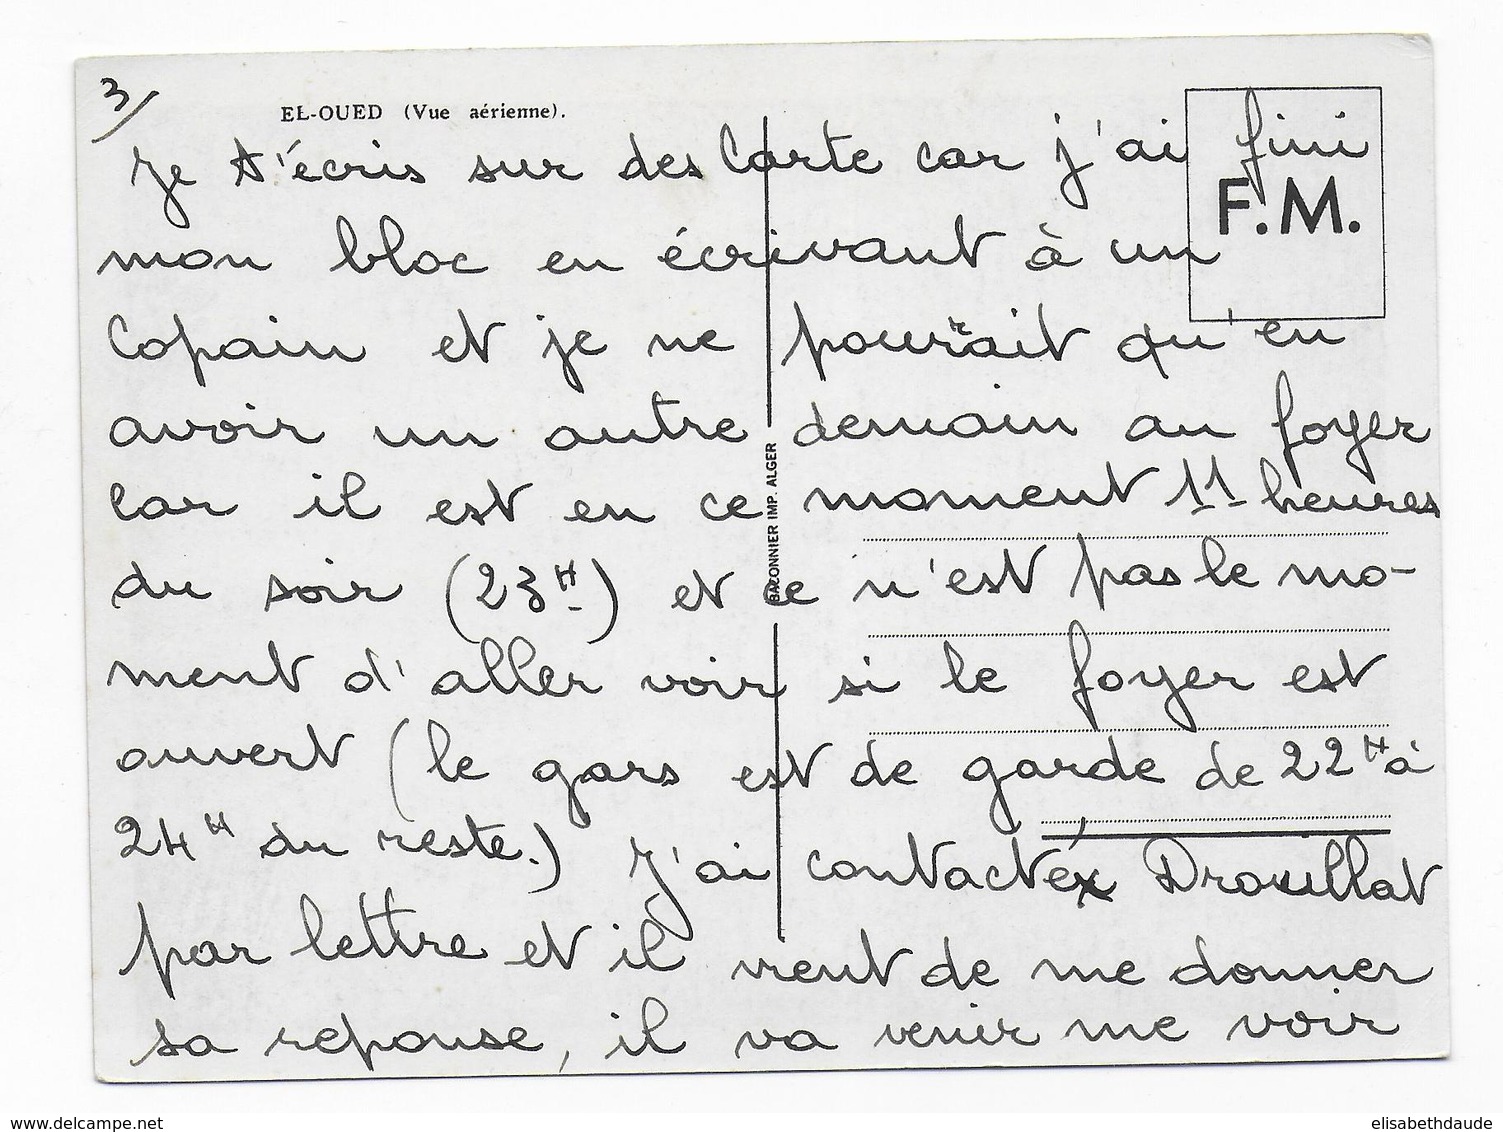 3/
EL-OUED (Vue aérienne).
Je t'écris sur des carte car j'ai fini
F.M.
mon bloc en écrivant à un
copain et je ne pourrait qu'en
avoir un autre demain au foyer
car il est en ce moment 11 heures
du soir (23H) et ce n'est pas le mo-
ment d'aller voir si le foyer est
ouvert (le gars est de garde de 22H à
24H du reste.) J'ai contacté Drouillat
par lettre et il vient de me donner
sa reponse, il va venir me voir
BACONNIER IMP. ALGER
www.delcampe.net
elisabethdaude